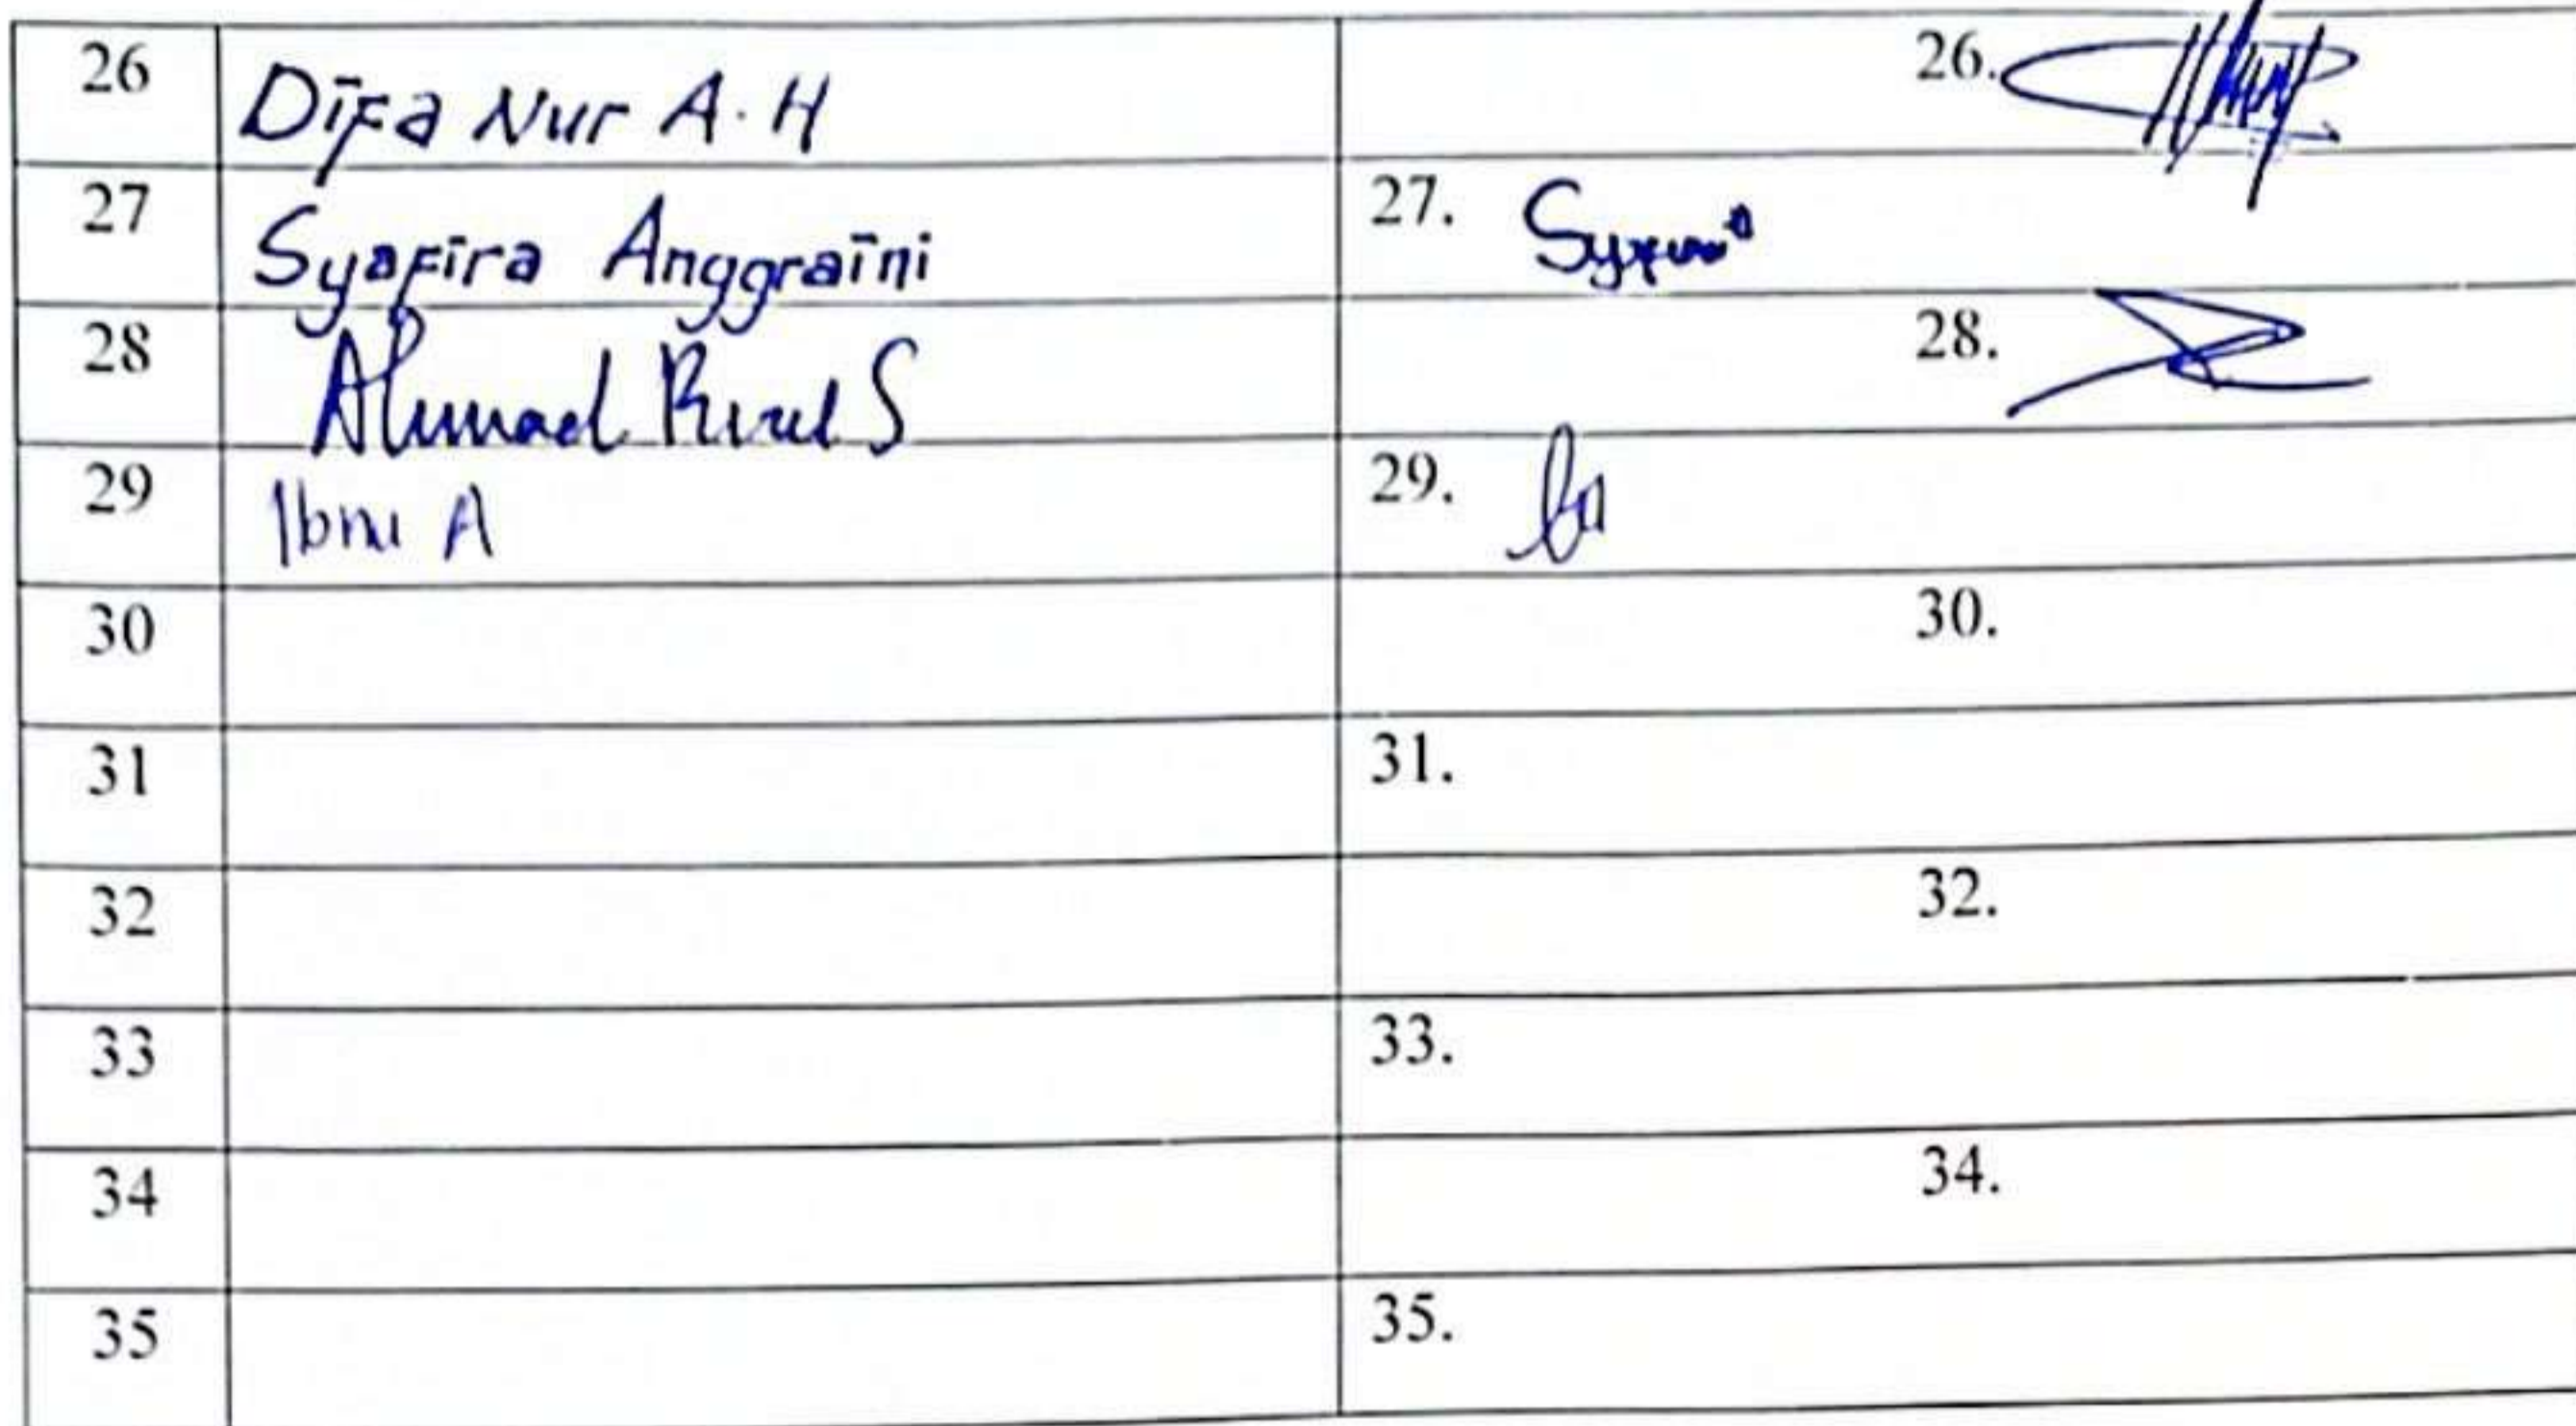 26 Difa Nur A. H 26.
27 Syafira Anggraini 27.
28 Ahmad S 28.
29 Ibnu A 29.
30 30.
31 31.
32 32.
33 33.
34 34.
35 35.